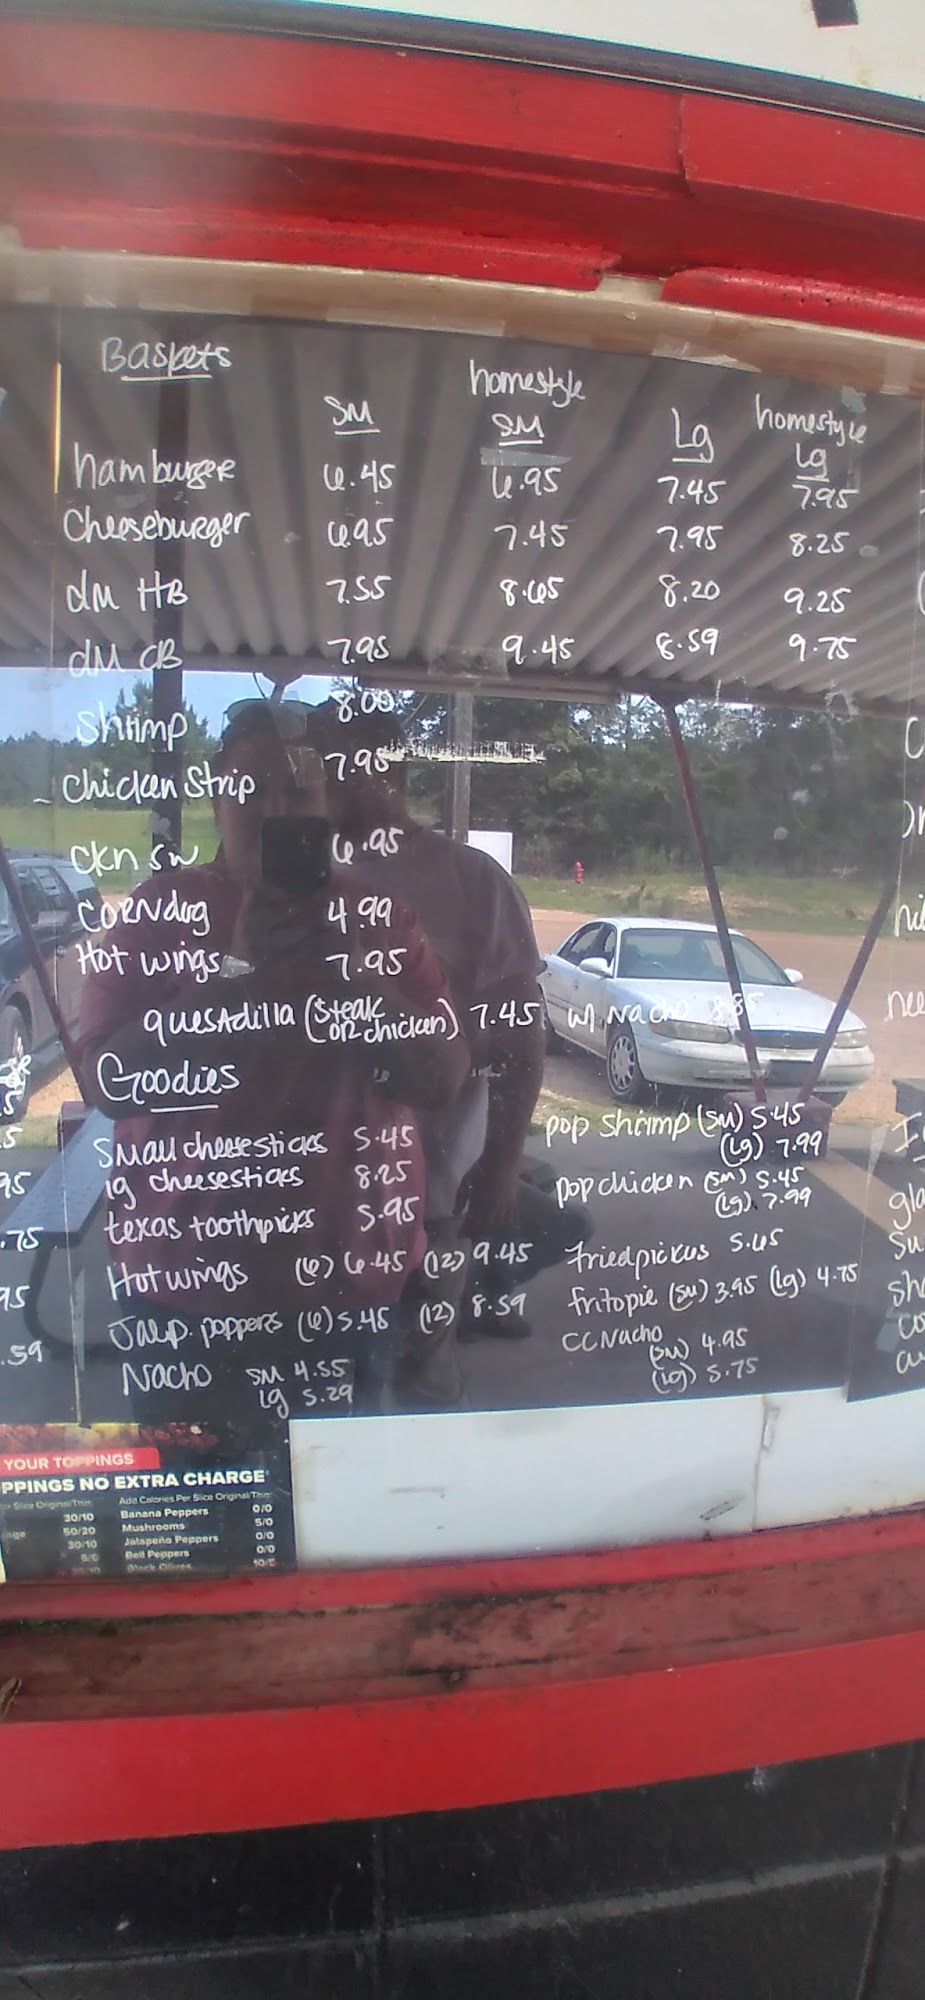 Baskets
SM homestyle SM Lg homestyle Lg
hamburger 6.45 6.95 7.45 7.95
Cheeseburger 6.95 7.45 7.95 8.25
dM HB 7.55 8.65 8.20 9.25
dM CB 7.95 9.45 8.59 9.75
shrimp 8.00
Chicken Strip 7.95
ckn sw 6.95
CORNdog 4.99
Hot wings 7.95
quesadilla (steak or chicken) 7.45 w/ Nacho 8.85
Goodies
Small cheesesticks 5.45
lg cheesesticks 8.25
texas toothpicks 5.95
Hot wings (6) 6.45 (12) 9.45
Jalp. poppers (6) 5.45 (12) 8.59
Nacho SM 4.55
lg 5.29
pop shrimp (SM) 5.45
(Lg) 7.99
pop chicken (SM) 5.45
(Lg) 7.99
Fried pickles 5.65
fritopie (SM) 3.95 (Lg) 4.75
CC Nacho
(SM) 4.95
(Lg) 5.75
.75
95
.59
YOUR TOPPINGS
PPINGS NO EXTRA CHARGE
Add Calories Per Slice Original/Thin
30/10 Banana Peppers 0/0
50/20 Mushrooms 5/0
30/10 Jalapeño Peppers 0/0
Bell Peppers 0/0
Black Olives